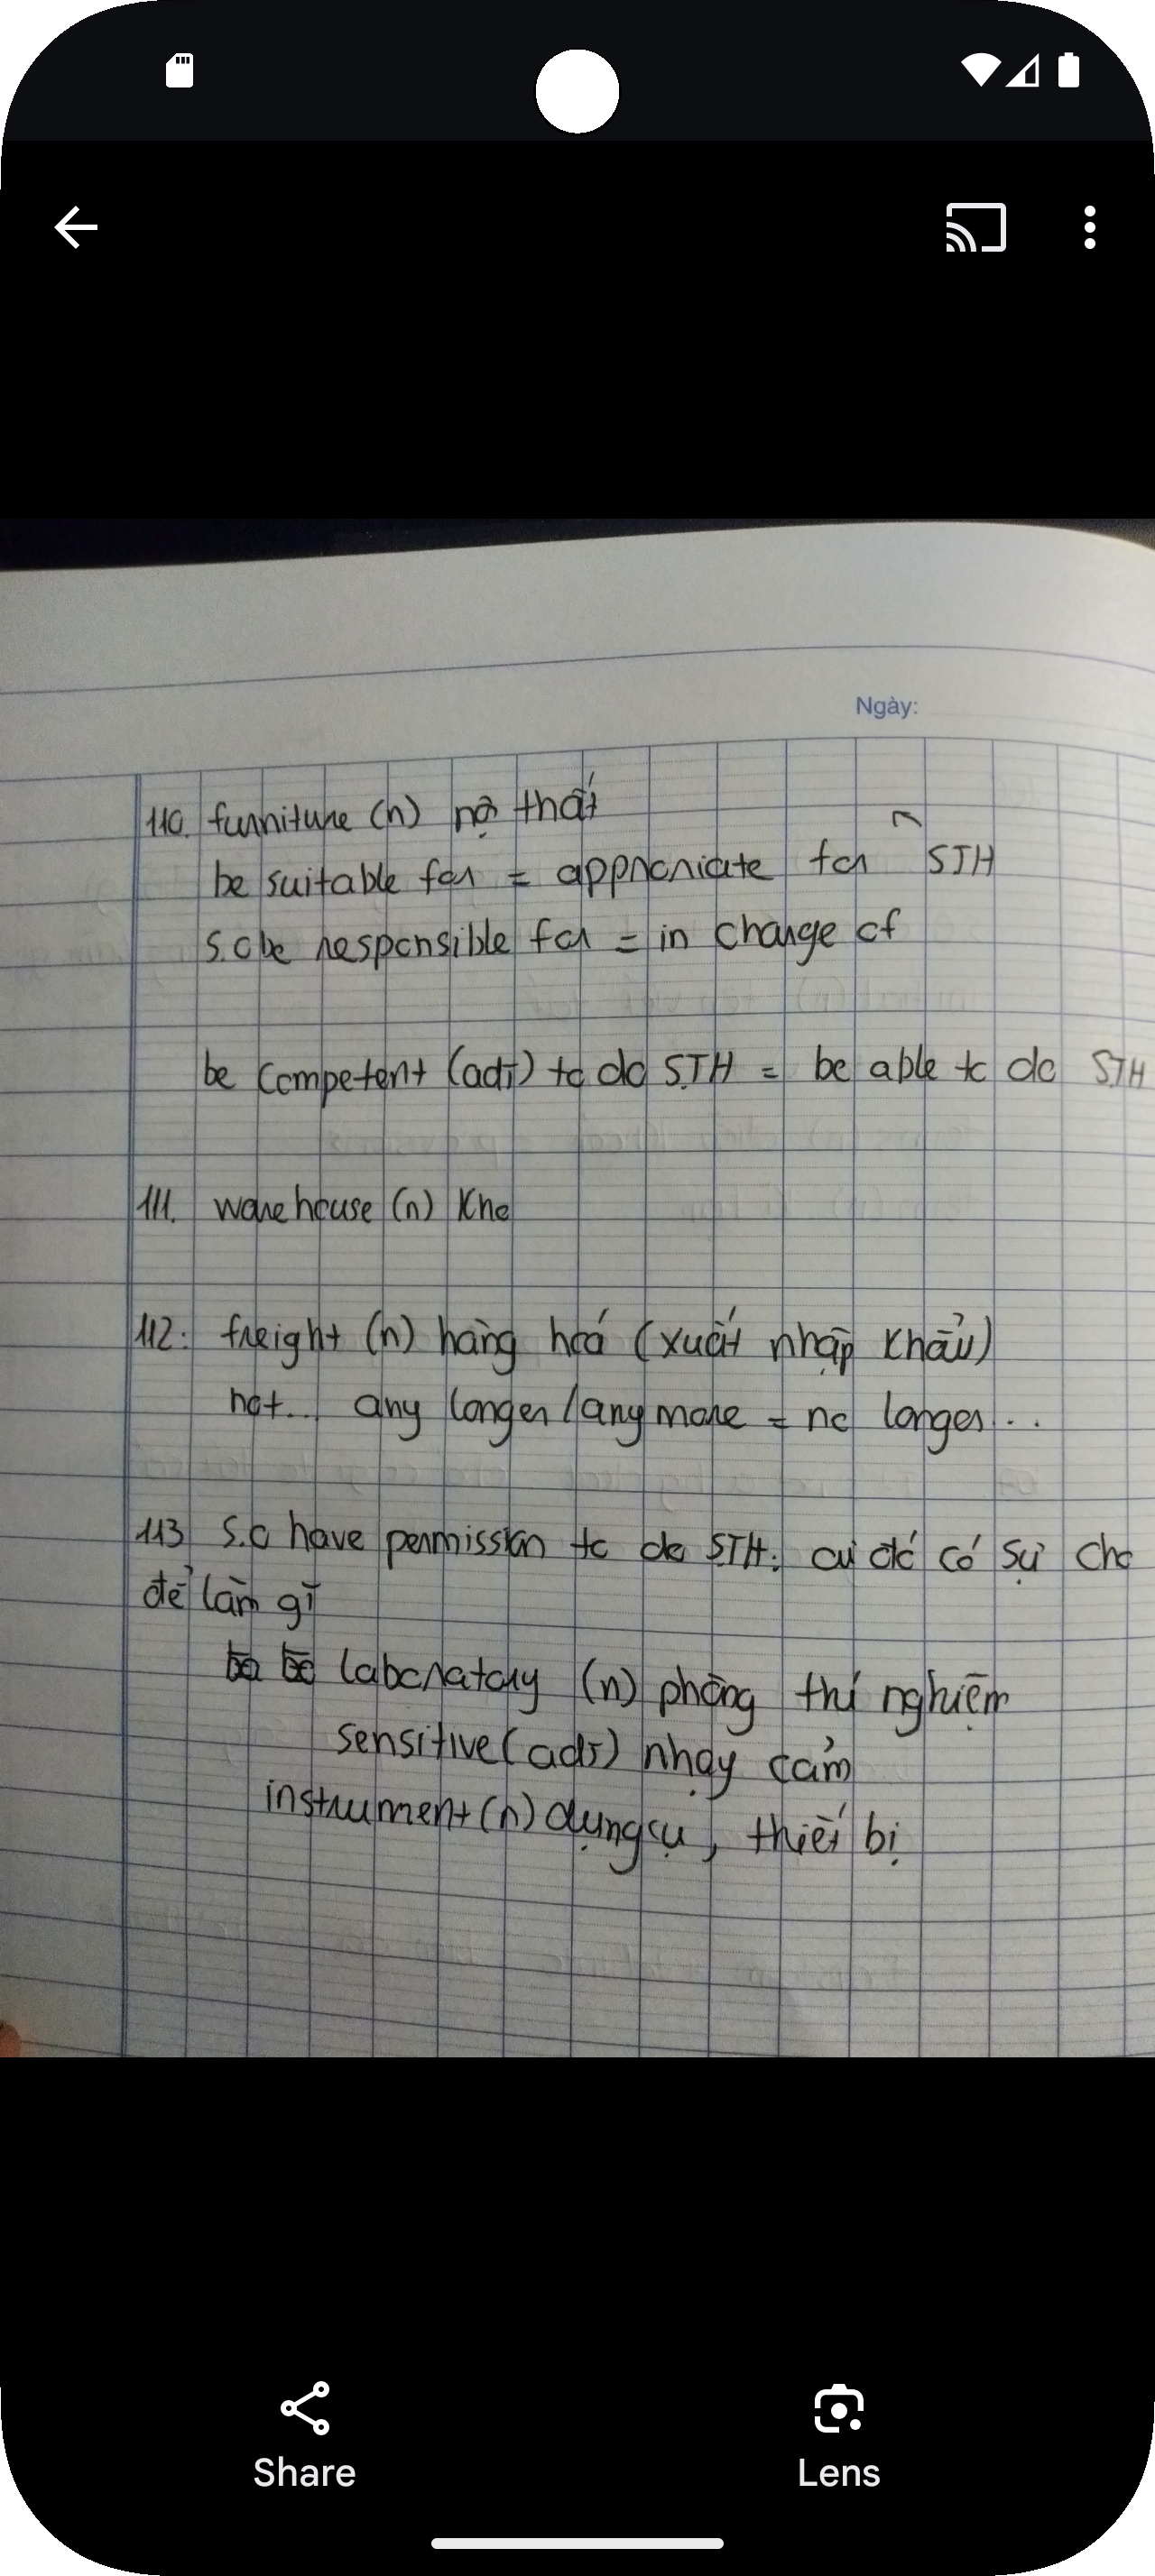 Ngày:
110. furniture (n) nộ thất
be suitable for = approriate for STH
S.O be responsible for = in charge of
be competent (adj) to do STH = be able to do STH
111. warehouse (n) Kho
112. freight (n) hàng hoá (xuất nhập khẩu)
not... any longer / any more = no longer...
113 S.O have permission to do STH: ai đó có sự cho
để làm gì
laboratory (n) phòng thí nghiệm
sensitive (adj) nhạy cảm
instrument (n) dụng cụ, thiết bị
Share
Lens